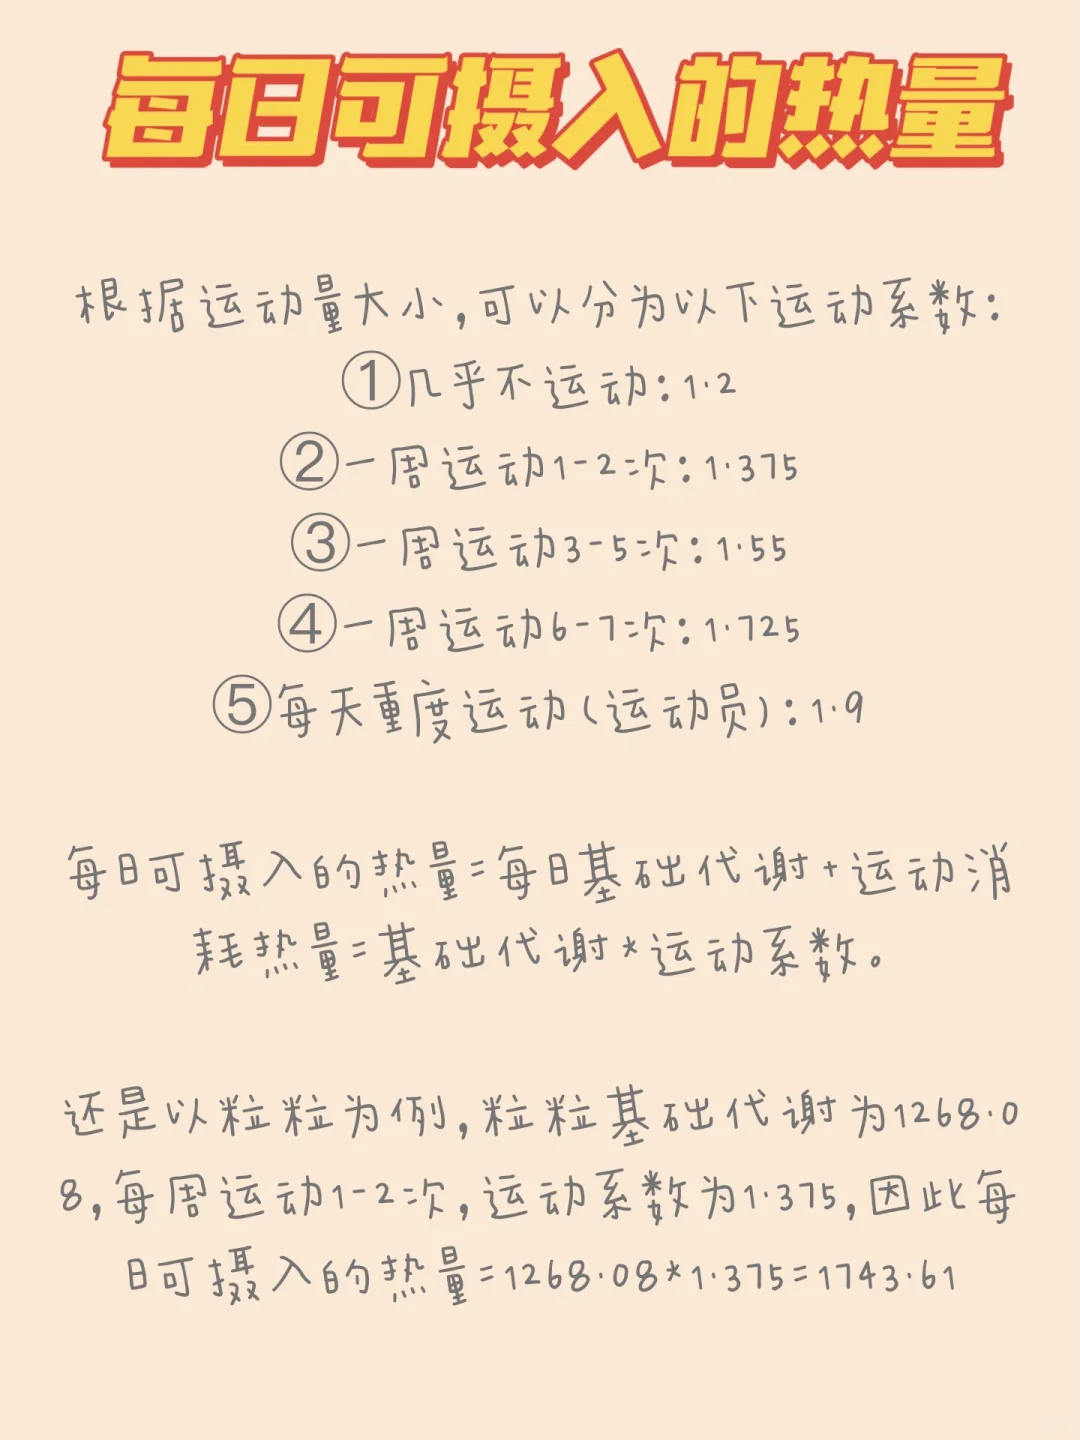 每日可摄入的热量
根据运动量大小,可以分为以下运动系数:
①几乎不运动:1.2
②一周运动1-2次:1.375
③一周运动3-5次:1.55
④一周运动6-7次:1.725
⑤每天重度运动(运动员):1.9
每日可摄入的热量=每日基础代谢+运动消
耗热量=基础代谢*运动系数。
还是以粒粒为例,粒粒基础代谢为1268.0
8,每周运动1-2次,运动系数为1.375,因此每
日可摄入的热量=1268.08*1.375=1743.61